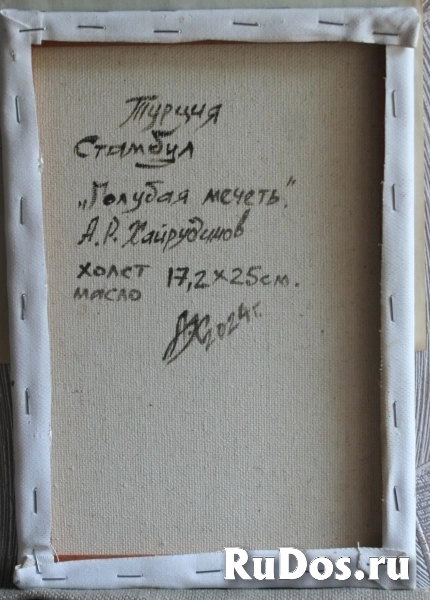 Турция
Стамбул
„Голубая мечеть".
А.Р. Хайрудинов
холст 17,2×25см.
масло
2024г.
RuDos.ru